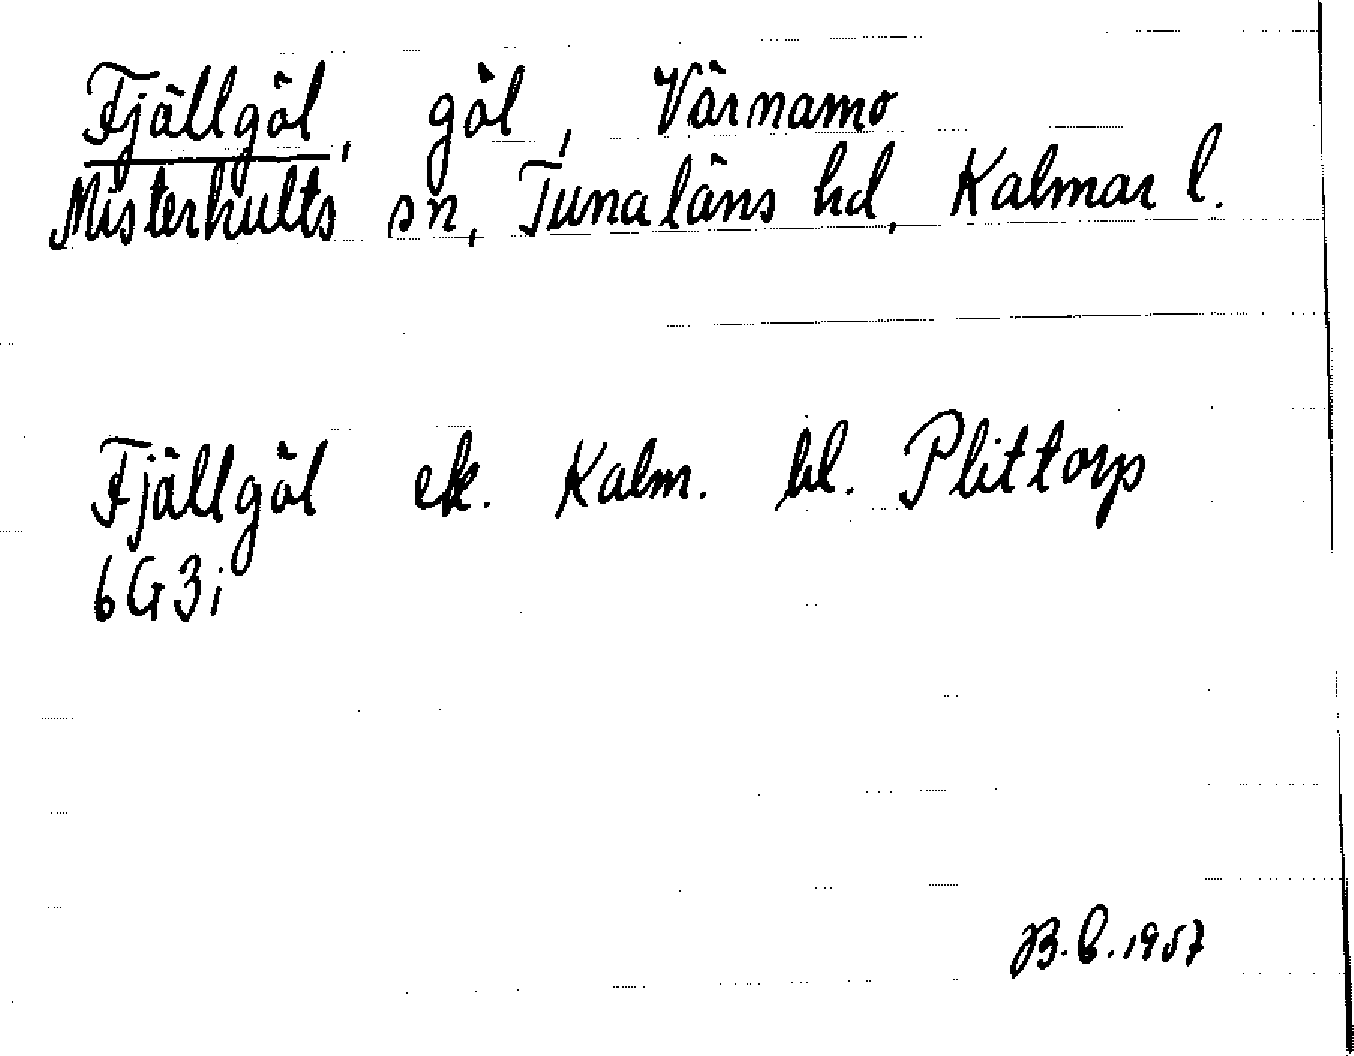 Fjällgöl, göl, Värnamo
Misterhults sn, Tunaläns hd, Kalmar l.
Fjällgöl ek. Kalm. bl. Plittorp
6G3i
B.L. 1957